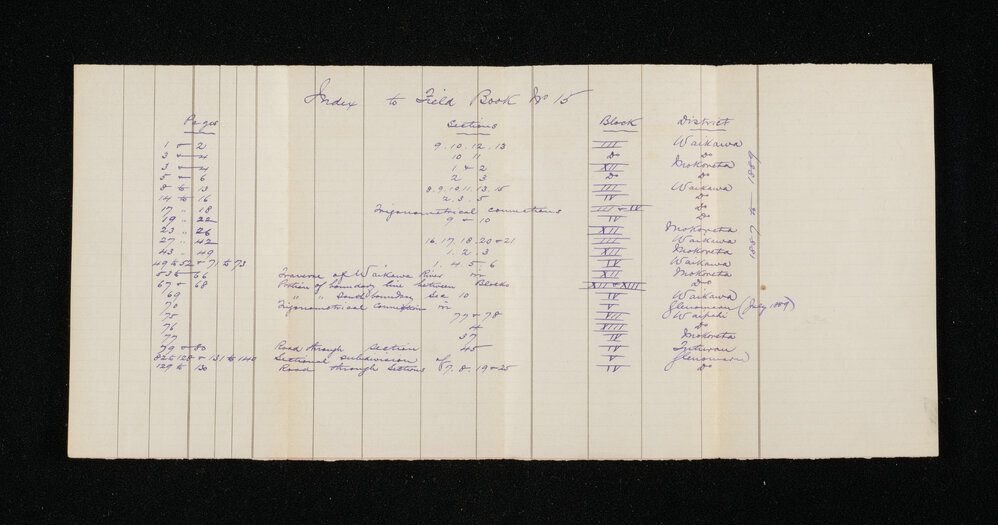 Index to Field Book No 15
Pages Sections Block District
1 & 2 9. 10. 12. 13 III Waikawa
3 & 4 10 11 Do Do
3 & 4 1 & 2 XII Mokoreta
5 & 6 2 3 Do Do
8 to 13 8. 9. 10. 11. 13. 15 III Waikawa
14 to 16 2. 3. 5 IV Do
17 " 18 Trigonometrical connections III & IV Do
19 " 22 9 & 10 IV Do
23 " 26 XII Mokoreta
27 " 42 16. 17. 18. 20 & 21 III Waikawa
43 " 49 1. 2. 3 XII Mokoreta
49 to 52 & 71 to 73 1. 4. 5 - 6 IV Waikawa
53 to 66 Traverse of Waikawa River in XII Mokoreta
67 & 68 Portion of boundary line between Blocks XII & XIII Do
69 " " South boundary Sec 10 IV Waikawa
70 Trigonometrical Connection in V Glenomaru (July 1889)
75 77 & 78 VII Waipahi
76 4 VIII Do
77 37 IV Mokoreta
79 & 80 Road through Section 45 IV Tuturau
82 to 128 & 131 to 140 Sectional subdivision of V Glenomaru
129 to 130 Road through Sections 7. 8. 19 & 25 IV Do
1887 to 1889